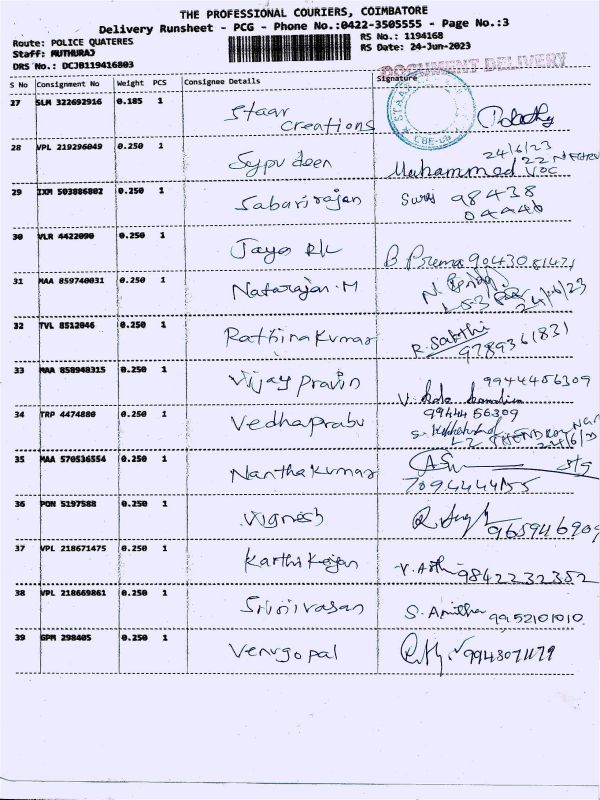 THE PROFESSIONAL COURIERS, COIMBATORE
Delivery Runsheet - PCG - Phone No.:0422-3505555 - Page No.:3
Route: POLICE QUATERES
RS No.: 1194168
Staff: MUTHURAJ
RS Date: 24-Jun-2023
DRS No.: DCJB119416803
DOCUMENT DELIVERY
S No Consignment No Weight PCS Consignee Details Signature
27 SLM 322692916 0.185 1 Staar
Creations
28 VPL 219296049 0.250 1 Sypudeen Muhammed 24/6/23
VOC
29 IXM 503886802 0.250 1 Sabarirajan 98438
04446
30 VLR 4422090 0.250 1 Jaya RK B Prema 90430 81471
31 MAA 859740031 0.250 1 Natarajan.M 24/06/23
32 TVL 8512046 0.250 1 Rathinakumar R. Sakthi
9789361831
33 MAA 858948315 0.250 1 Vijay Pravin 9944456309
34 TRP 4474880 0.250 1 Vedhaprabu 9944456309
35 MAA 570536554 0.250 1 Nanthakumar
36 PON 5197588 0.250 1 Vignesh
37 VPL 218671475 0.250 1 Karthikajan 9842232352
38 VPL 218669861 0.250 1 Srinivasan S. Amitha 9952101010
39 GPM 298405 0.250 1 Venugopal 9943071179